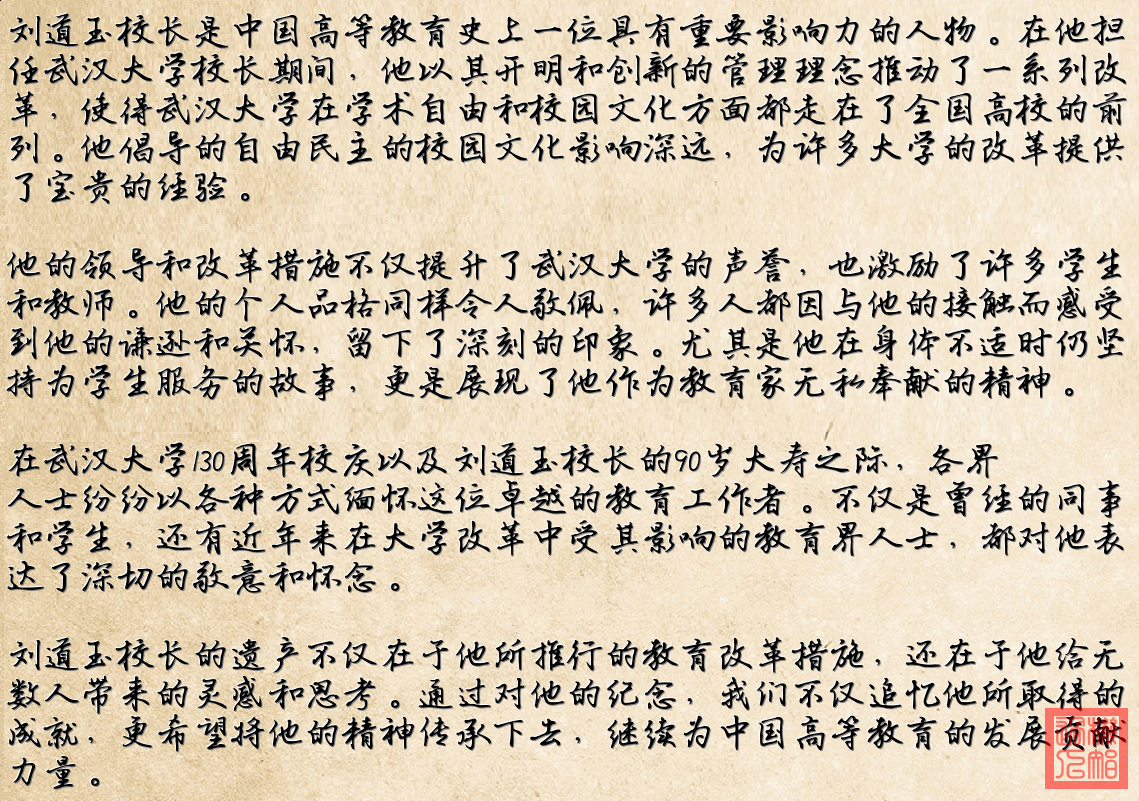 刘道玉校长是中国高等教育史上一位具有重要影响力的人物。在他担
任武汉大学校长期间，他以其开明和创新的管理理念推动了一系列改
革，使得武汉大学在学术自由和校园文化方面都走在了全国高校的前
列。他倡导的自由民主的校园文化影响深远，为许多大学的改革提供
了宝贵的经验。
他的领导和改革措施不仅提升了武汉大学的声誉，也激励了许多学生
和教师。他的个人品格同样令人敬佩，许多人都因与他的接触而感受
到他的谦逊和关怀，留下了深刻的印象。尤其是他在身体不适时仍坚
持为学生服务的故事，更是展现了他作为教育家无私奉献的精神。
在武汉大学130周年校庆以及刘道玉校长的90岁大寿之际，各界
人士纷纷以各种方式缅怀这位卓越的教育工作者。不仅是曾经的同事
和学生，还有近年来在大学改革中受其影响的教育界人士，都对他表
达了深切的敬意和怀念。
刘道玉校长的遗产不仅在于他所推行的教育改革措施，还在于他给无
数人带来的灵感和思考。通过对他的纪念，我们不仅追忆他所取得的
成就，更希望将他的精神传承下去，继续为中国高等教育的发展贡献
力量。